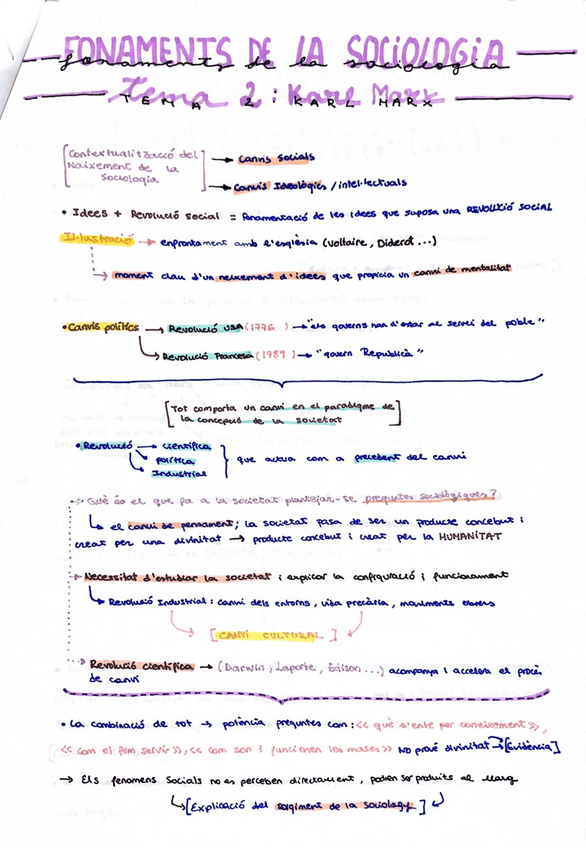 FONAMENTS DE LA SOCIOLOGIA
fonaments de la sociologia
Tema 2: Karl Marx
TEMA 2: KARL MARX
[Contextualització del → canvis socials
Naixement de la
Sociologia] → Canvis Ideològics / intel·lectuals
• Idees + Revolució social = fonamentació de les idees que suposa una REVOLUCIÓ SOCIAL
Il·lustració → enfrontament amb l'església (Voltaire, Diderot ...)
→ moment clau d'un neixement d'idees que propicia un canvi de mentalitat
• Canvis polítics → Revolució USA (1776 ) → "els governs han d'estar al servei del poble"
→ Revolució Francesa (1789) → "govern Republicà"
[Tot comporta un canvi en el paradigme de
la concepció de la societat]
• Revolució → científica
política } que actua com a precedent del canvi
Industrial
→ Què és el que fa a la societat plantejar-se preguntes sociològiques?
↳ el canvi de pensament; la societat pasa de ser un producte concebut i
creat per una divinitat → producte concebut i creat per la HUMANITAT
→ Necessitat d'estudiar la societat i explicar la configuració i funcionament
↳ Revolució Industrial: canvi dels entorns, vida precària, moviments obrers
[CANVI CULTURAL]
→ Revolució científica → (Darwin, Laporte, Edison ...) acompanya i accelera el procés
de canvi
• La combinació de tot → potència preguntes com: << què s'ente per coneixement >>,
<< com el fem servir >>, << com son i funcionen les masses >> NO prové divinitat → [Evidència]
→ Els fenomens Socials no es perceben directament, poden ser produïts al llarg
↳ [Explicació del sorgiment de la sociology]